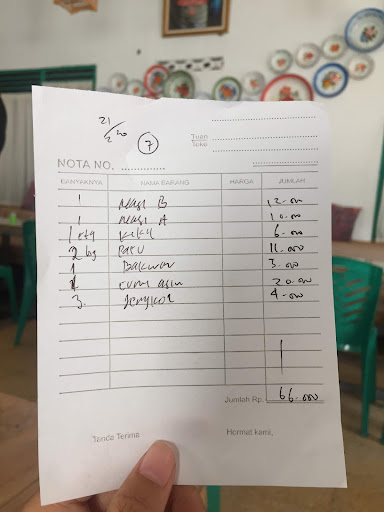 21/2 20
7
Tuan
Toko
NOTA NO.
BANYAKNYA NAMA BARANG HARGA JUMLAH
1 Nasi B 12.000
1 Nasi A 10.000
1 6.000
2 bg 11.000
1 Bakwan 3.000
1 cumi asin 20.000
3. Jengkol 4.000
Jumlah Rp. 66.000
Tanda Terima Hormat kami,